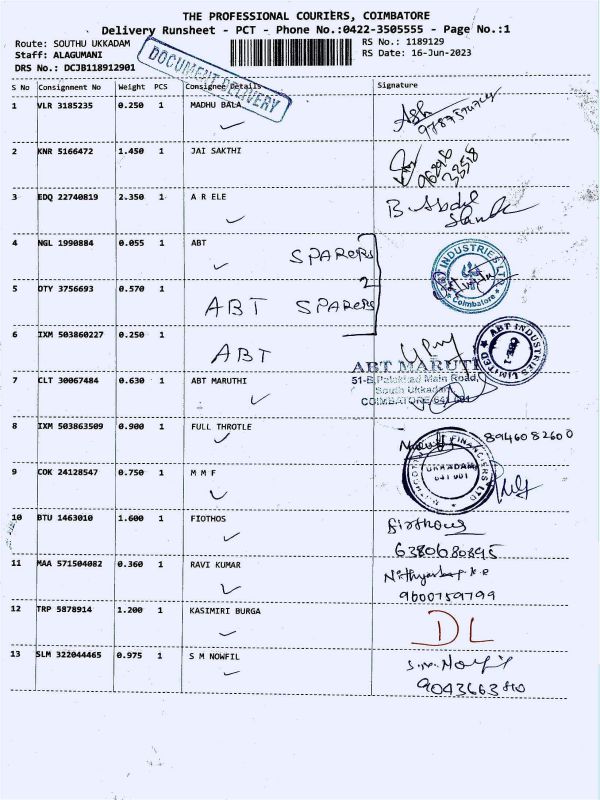 THE PROFESSIONAL COURIERS, COIMBATORE
Delivery Runsheet - PCT - Phone No.:0422-3505555 - Page No.:1
Route: SOUTHU UKKADAM
RS No.: 1189129
Staff: ALAGUMANI
RS Date: 16-Jun-2023
DRS No.: DCJB118912901
DOCUMENT DELIVERY
S No Consignment No Weight PCS Consignee Details Signature
1 VLR 3185235 0.250 1 MADHU BALA
2 KNR 5166472 1.450 1 JAI SAKTHI
3 EDQ 22740819 2.350 1 A R ELE
B. Abdul
4 NGL 1990884 0.055 1 ABT
SPARERS
INDUSTRIES LTD
Coimbatore
5 DTY 3756693 0.570 1
2
ABT SPARERS
6 IXM 503860227 0.250 1
ABT
ABT INDUSTRIES LIMITED
CBE-1
ABT MARUTI
7 CLT 30067484 0.630 1 ABT MARUTHI
51-B, Palakkad Main Road,
South Ukkadam
COIMBATORE 641 001
8 IXM 503863509 0.900 1 FULL THROTLE
8946082600
9 COK 24128547 0.750 1 M M F
FINANCIERS LTD
UKKADAM
641 001
10 BTU 1463010 1.600 1 FIOTHOS
Firthous
6380680895
11 MAA 571504082 0.360 1 RAVI KUMAR
9600759799
12 TRP 5878914 1.200 1 KASIMIRI BURGA
DL
13 SLM 322044465 0.975 1 S M NOWFIL
S.M. Nowfil